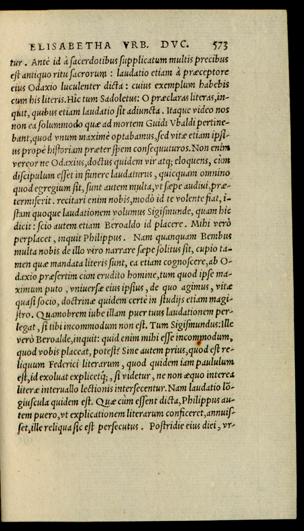 ELISABETHA VRB. DVC. 573
tur. Antè id à sacerdotibus supplicatum multis precibus
est antiquo ritu sacrorum: laudatio etiam à præceptore
eius Odaxio luculenter dicta: cuius exemplum habebis
cum his literis. Hic tum Sadoletus: O præclaras literas, in-
quit, quibus etiam laudatio sit adiuncta. Itaque video nos
non ea solummodo quæ ad mortem Guidi Vbaldi pertine-
bant, quod vnum maximè optabamus, sed vitæ etiam ipsi-
us propè historiam præter spem consequuturos. Non enim
vereor ne Odaxius, doctus quidem vir atq; eloquens, cùm
discipulum esset in funere laudaturus, quicquam omnino
quod egregium sit, sunt autem multa, vt sæpe audiui, præ-
termiserit. recitari enim nobis, modò id te volente fiat, i-
stam quoque laudationem volumus Sigismunde, quam hic
dicit: scio autem etiam Beroaldo id placere. Mihi verò
perplacet, inquit Philippus. Nam quanquam Bembus
multa nobis de illo verò narrare sæpe solitus sit, cupio ta-
men quæ mandata literis sunt, ea etiam cognoscere, ab O-
daxio præsertim cùm erudito homine, tum quod ipse ma-
ximum puto, vniuersæ eius ipsius, de quo agimus, vitæ
quasi socio, doctrinæ quidem certè in studijs etiam magi-
stro. Quamobrem iube illam puer tuus laudationem per-
legat, si tibi incommodum non est. Tum Sigismundus: Ille
verò Beroalde, inquit: quid enim mihi esse incommodum,
quod vobis placeat, potest? Sine autem prius, quod est re-
liquum Federici literarum, quod quidem iam paululum
est, id exoluat explicetq;, si videtur, ne non æquo interea
literæ interuallo lectionis intersecentur. Nam laudatio lõ-
giuscula quidem est. Quæ cùm essent dicta, Philippus au-
tem puero, vt explicationem literarum conficeret, annuis-
set, ille reliqua sic est persecutus. Postridie eius diei, vr-